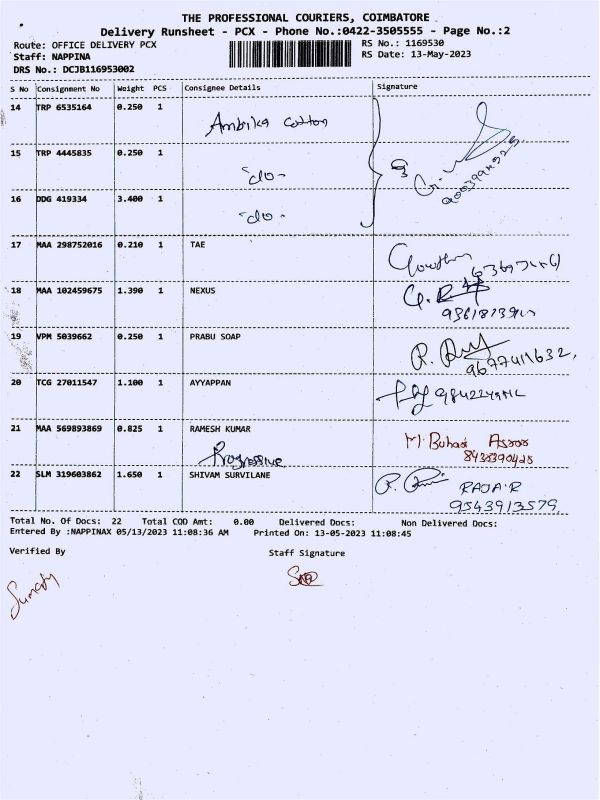 THE PROFESSIONAL COURIERS, COIMBATORE
Delivery Runsheet - PCX - Phone No.:0422-3505555 - Page No.:2
Route: OFFICE DELIVERY PCX RS No.: 1169530
Staff: NAPPINA RS Date: 13-May-2023
DRS No.: DCJB116953002
S No Consignment No Weight PCS Consignee Details Signature
14 TRP 6535164 0.250 1 Ambika Cotton
15 TRP 4445835 0.250 1 -do-
16 DDG 419334 3.400 1 -do-
17 MAA 298752016 0.210 1 TAE
18 MAA 102459675 1.390 1 NEXUS
19 VPM 5039662 0.250 1 PRABU SOAP 9677411632,
20 TCG 27011547 1.100 1 AYYAPPAN
21 MAA 569893869 0.825 1 RAMESH KUMAR M. Buhari
Progressive 8438390428
22 SLM 319603862 1.650 1 SHIVAM SURVILANE RAJA.R
9543913579
Total No. Of Docs: 22 Total COD Amt: 0.00 Delivered Docs: Non Delivered Docs:
Entered By :NAPPINAX 05/13/2023 11:08:36 AM Printed On: 13-05-2023 11:08:45
Verified By Staff Signature